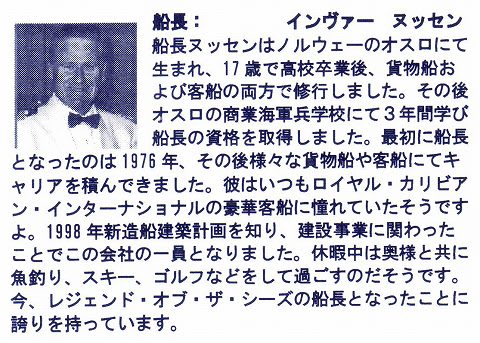 船長： インヴァー ヌッセン
船長ヌッセンはノルウェーのオスロにて
生まれ、17歳で高校卒業後、貨物船お
よび客船の両方で修行しました。その後
オスロの商業海軍兵学校にて３年間学び
船長の資格を取得しました。最初に船長
となったのは1976年、その後様々な貨物船や客船にてキ
ャリアを積んできました。彼はいつもロイヤル・カリビア
ン・インターナショナルの豪華客船に憧れていたそうです
よ。1998年新造船建築計画を知り、建設事業に関わった
ことでこの会社の一員となりました。休暇中は奥様と共に
魚釣り、スキー、ゴルフなどをして過ごすのだそうです。
今、レジェンド・オブ・ザ・シーズの船長となったことに
誇りを持っています。